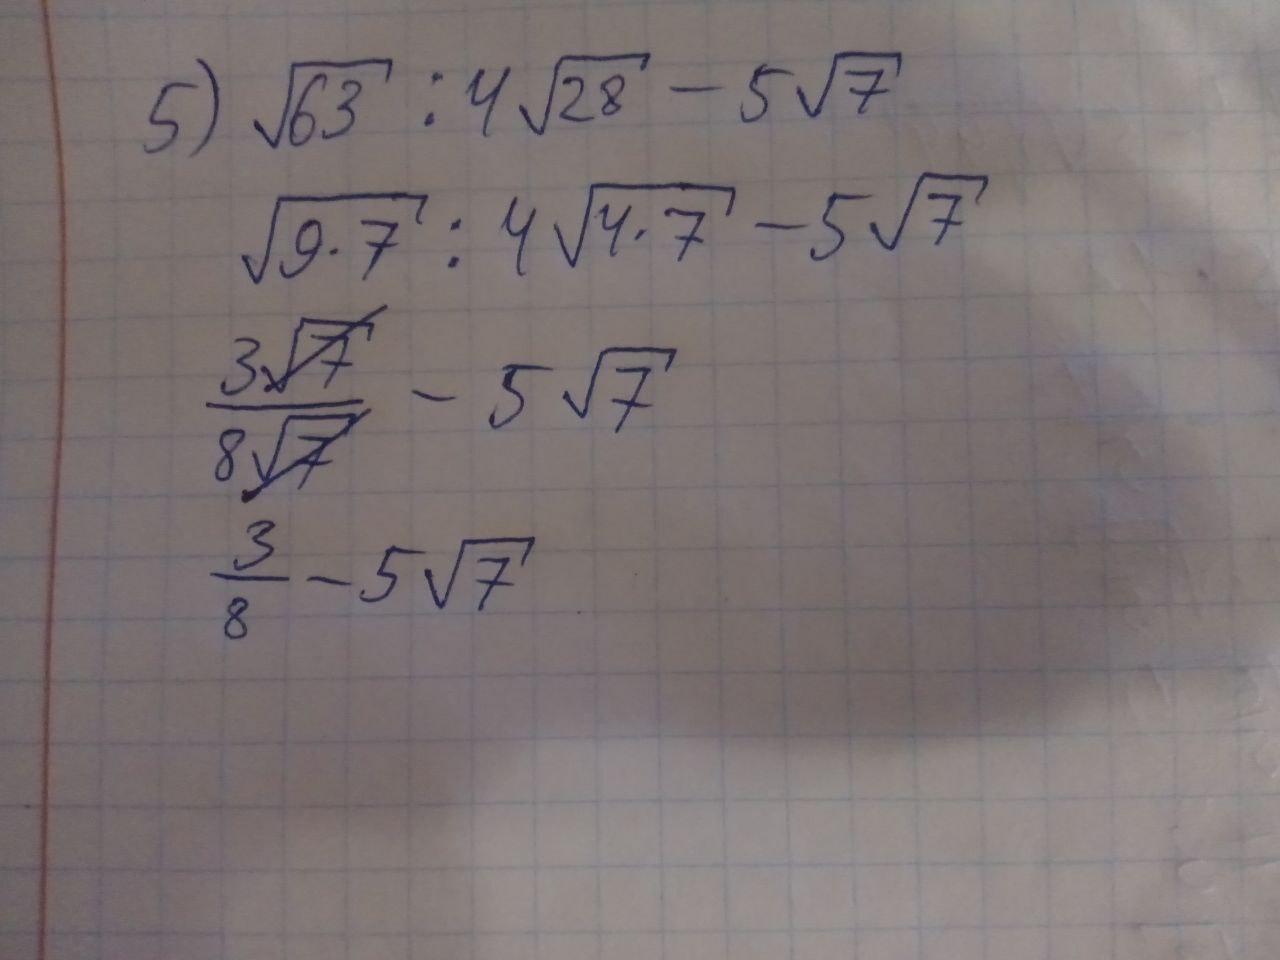 5) √63 : 4√28 − 5√7
√9·7 : 4√4·7 − 5√7
3√7/8√7 − 5√7
3/8 − 5√7